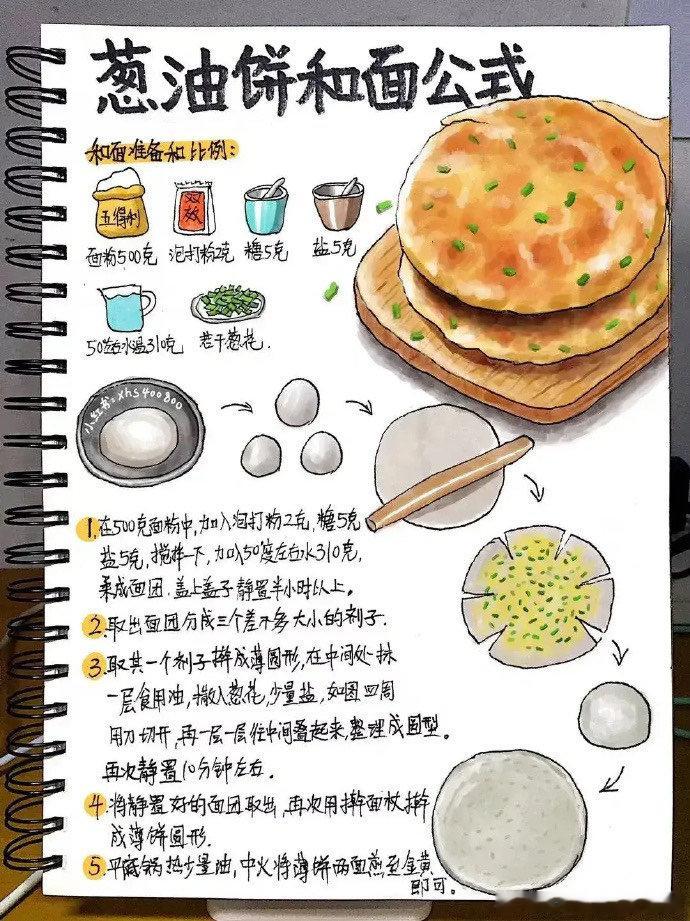 葱油饼和面公式
和面准备和比例:
五得利
双效
面粉500克 泡打粉2克 糖5克 盐5克
50度左右水温310克 若干葱花.
小红书:xhs400800
1.在500克面粉中,加入泡打粉2克,糖5克
盐5克,搅拌一下,加入50度左右水310克,
柔成面团,盖上盖子静置半小时以上。
2.取出面团分成三个差不多大小的剂子.
3.取其一个剂子擀成薄圆形,在中间处抹
一层食用油,撒入葱花,少量盐,如图四周
用刀切开,再一层一层往中间叠起来,整理成圆型。
再次静置10分钟左右。
4.将静置好的面团取出,再次用擀面杖擀
成薄饼圆形.
5.平底锅热少量油,中火将薄饼两面煎至金黄
即可。